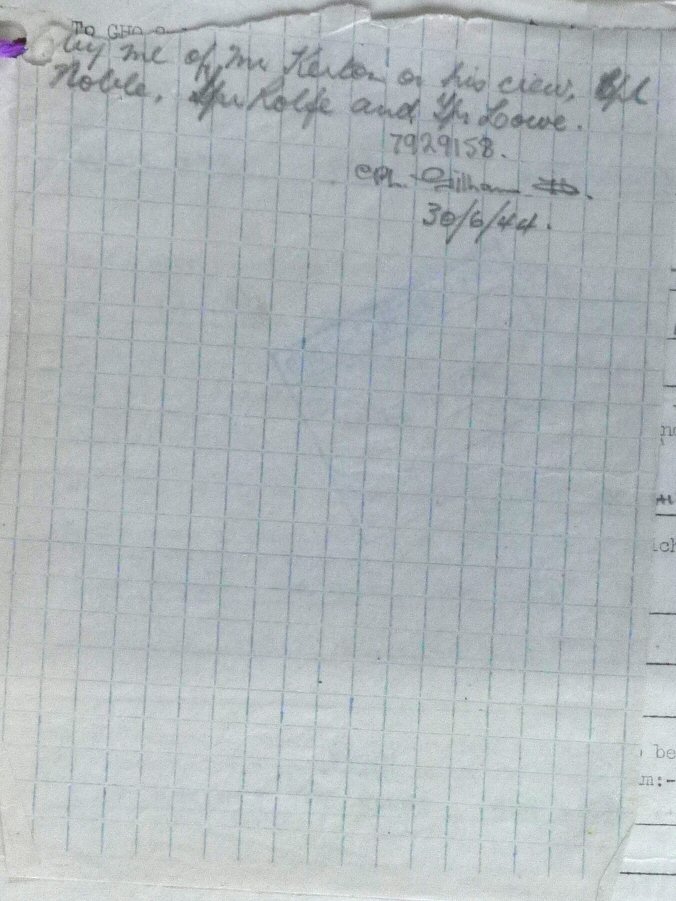 TO GHQ
by me of Mr Kerton or his crew, Cpl
Noble, Tpr Rolfe and Tpr Lowe.
7929158.
CPL. Gillham
30/6/44.
ich
be
m:-